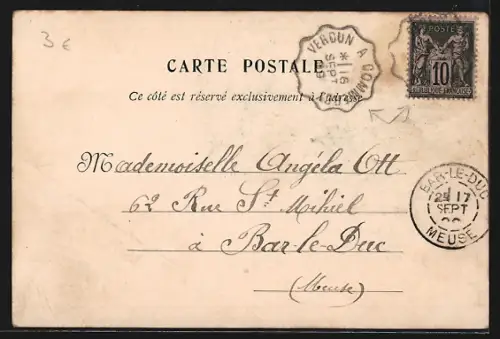 3 €
VERDUN A COMMERCY
16
SEPT
99
POSTE
10
REPUBLIQUE FRANCAISE
CARTE POSTALE
Ce côté est réservé exclusivement à l'adresse
Mademoiselle Angéla Ott
62 Rue St Mihiel
à Bar-le-Duc
(Meuse)
BAR-LE-DUC
2E 17
SEPT
MEUSE